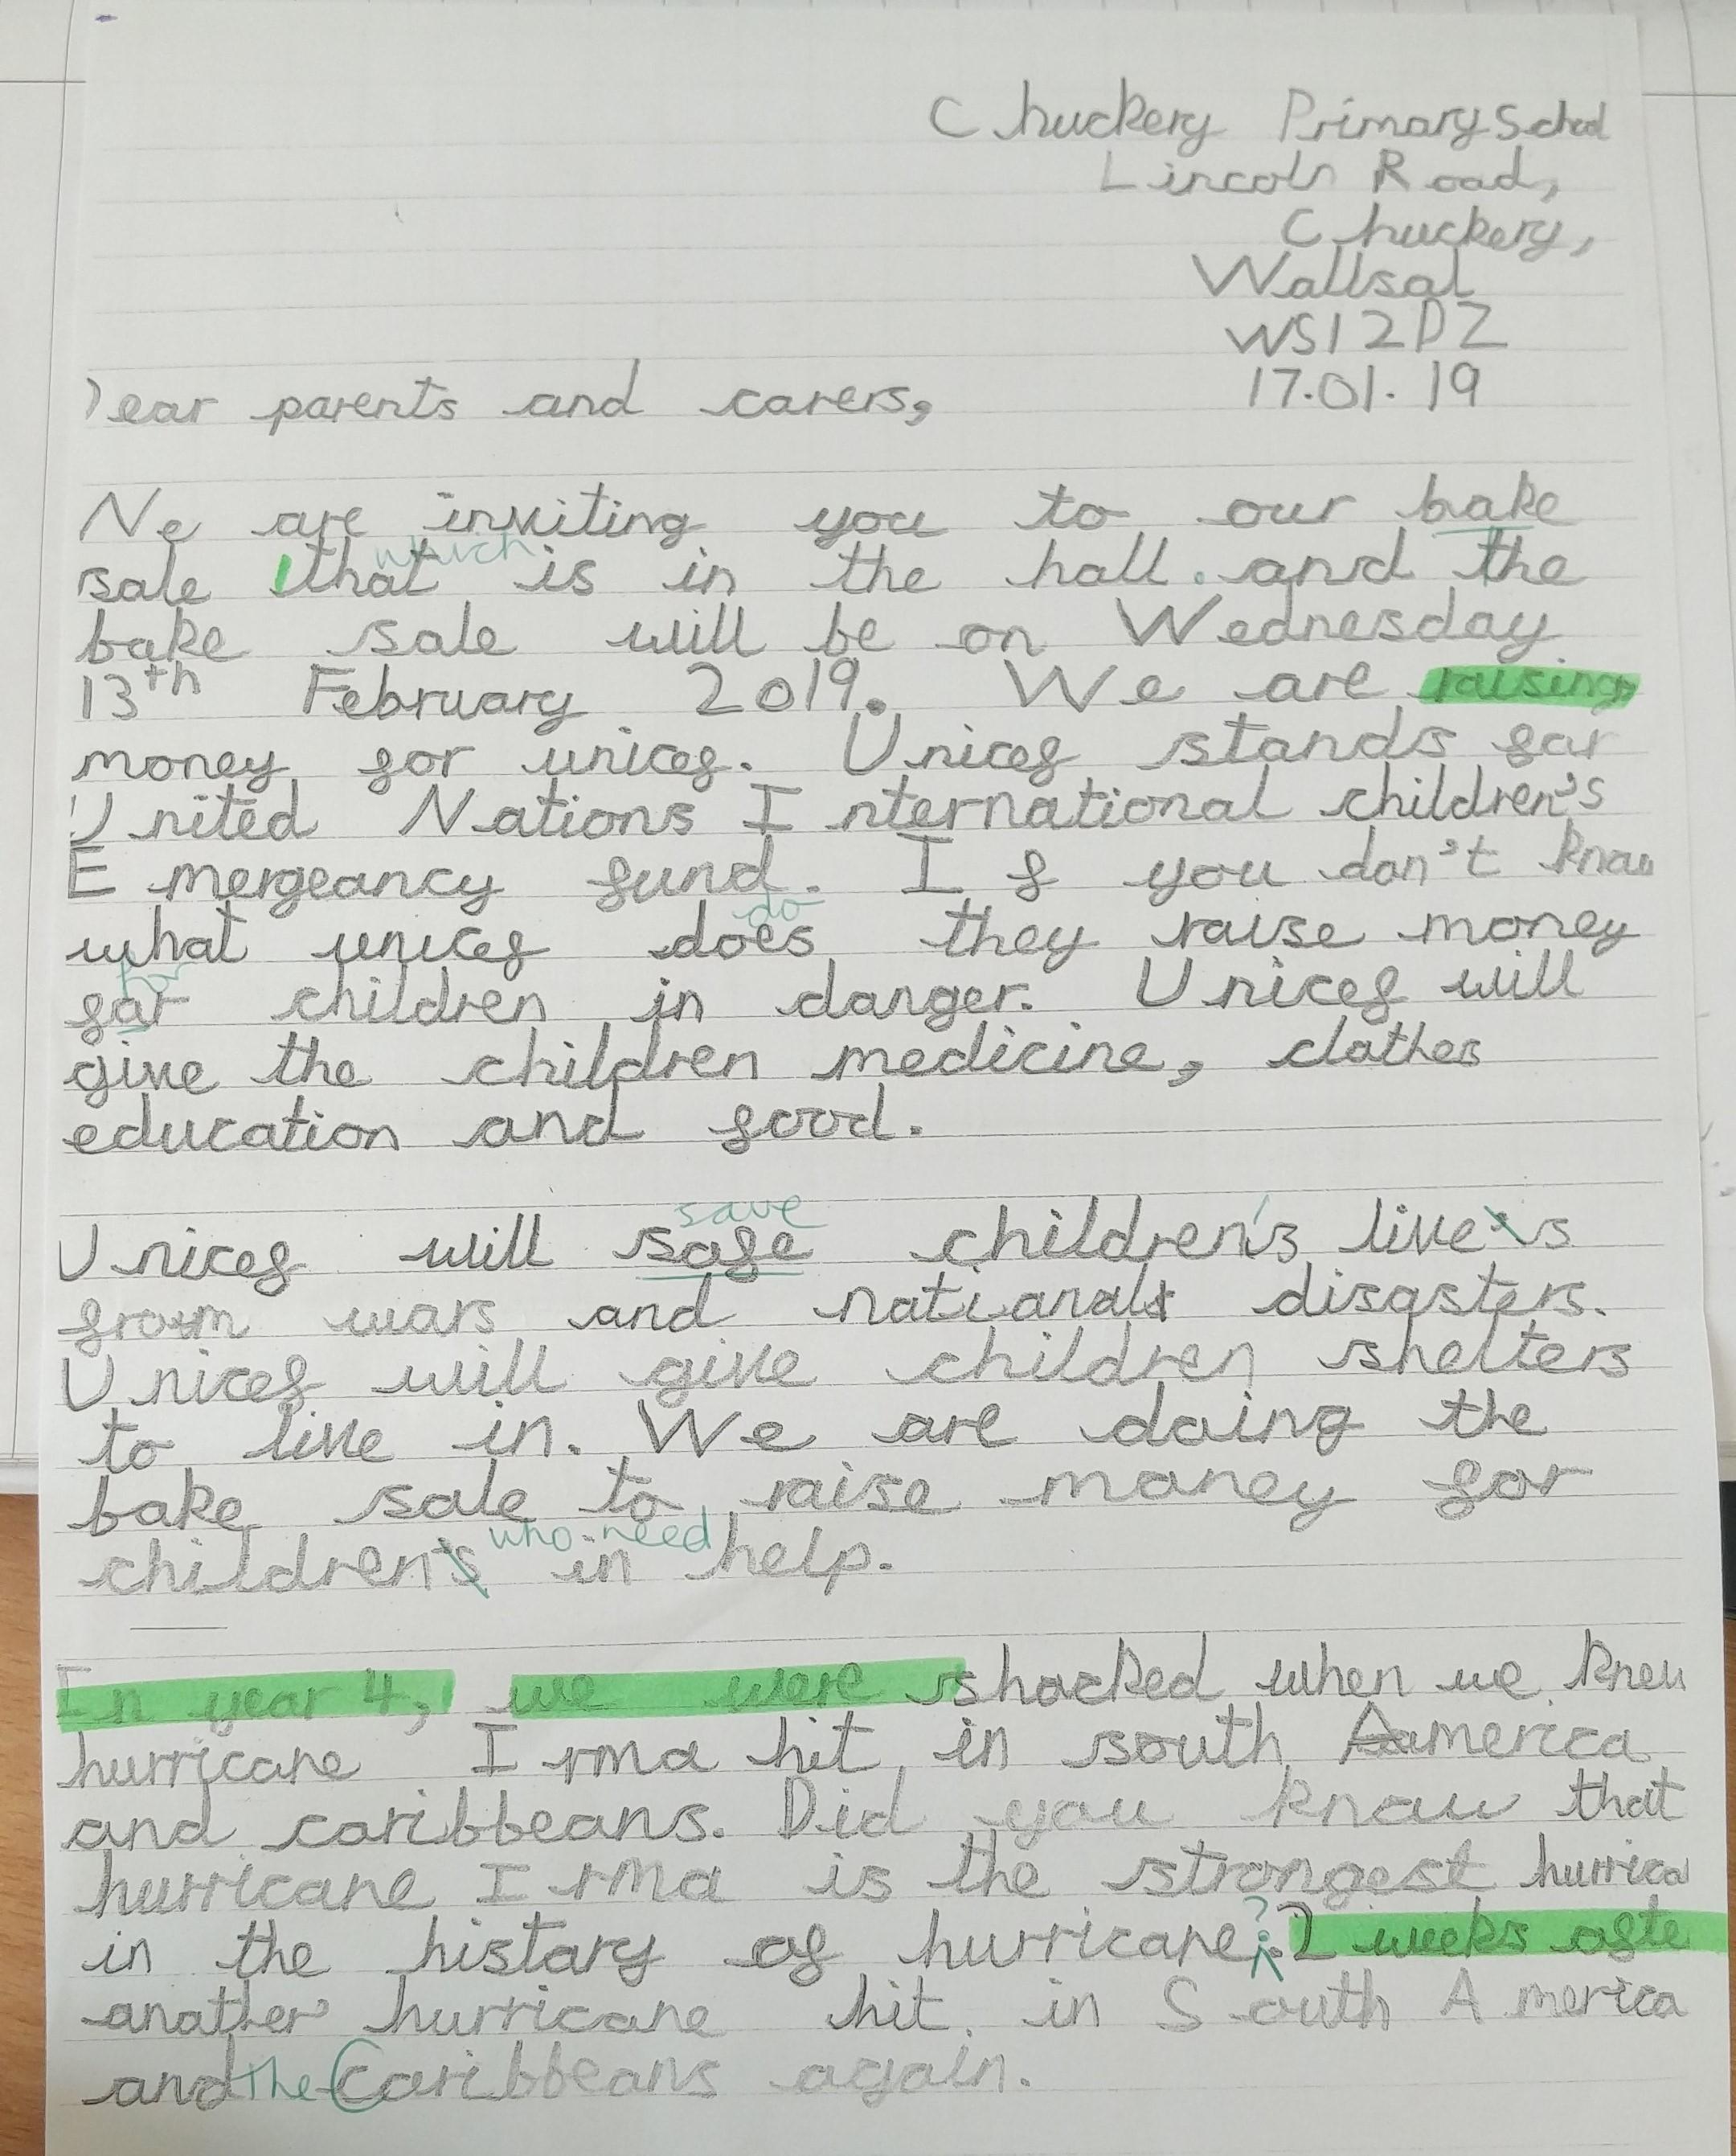 Chuckery Primary School
Lincoln Road,
Chuckery,
Wallsal
WS1 2DZ
17.01.19
Dear parents and carers,
We are inviting you to our bake
which
sale that is in the hall. and the
bake sale will be on Wednesday
13th February 2019. We are raising
money for unicef. Unicef stands for
United Nations International children's
Emergeancy fund. If you don't know
do
what unicef does they raise money
for
far children in danger. Unicef will
give the children medicine, clothes
education and food.
save
Unicef will safe children's live's
from wars and national disasters.
Unicef will give children shelters
to live in. We are doing the
bake sale to raise money for
who need
children's in help.
In year 4, we were shocked when we knew
hurricane Irma hit in south America
and caribbeans. Did you know that
hurricane Irma is the strongest hurrica
in the history of hurricane?. 2 weeks afte
another hurricane hit in South America
and the Caribbeans again.